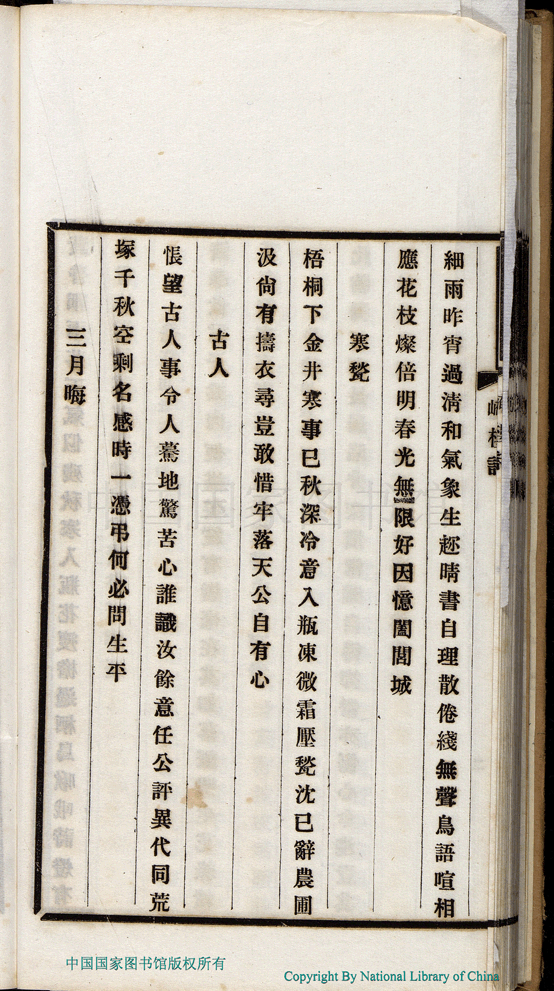 細雨昨宵過清和氣象生趂晴書自理散倦綫無聲鳥語喧相
應花枝燦倍明春光無限好因憶闔閭城
寒甃
梧桐下金井寒事已秋深冷意入瓶凍微霜壓甃沈已辭農圃
汲尙有擣衣尋豈敢惜牢落天公自有心
古人
悵望古人事令人驀地驚苦心誰識汝餘意任公評異代同荒
塚千秋空剩名感時一憑弔何必問生平
三月晦
中国国家图书馆版权所有
Copyright By National Library of China